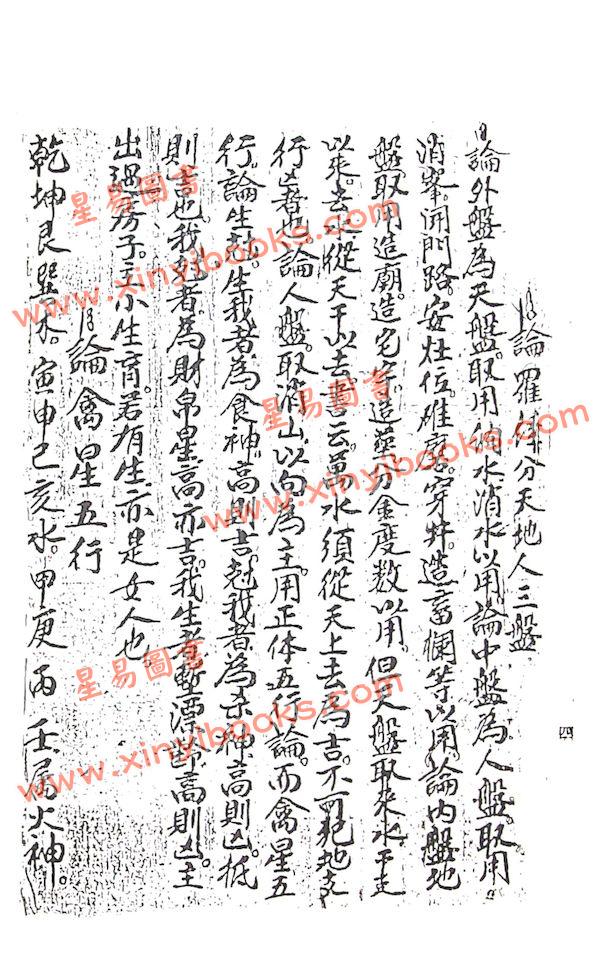 論羅經分天地人三盤
論外盤為天盤。取用納水消水以用。論中盤為人盤。取用
消峯。開門路。安灶位。碓磨。穿井。造畜欄等以用。論内盤地
盤取用造廟。造宅舍。造塟分金度數以用。但天盤取來水干支
以來。去水。從天干以去。書云萬水須從天上去為吉。不可犯地支
行凶者也。論人盤取消山以向為主。用正体五行論。而禽星五
行。論生尅。生我者為食神。高則吉。尅我者為杀神高則凶。低
則吉也。我尅者。為財帛星高亦吉。我生者暫漂高則凶。主
出過房子。主小生育。若有生亦是女人也。
論禽星五行
乾坤艮巽木。寅申巳亥水。甲庚丙壬屬火神。
四
星易圖書
www.xinyibooks.com
星易圖書
www.xinyibooks.com
星易圖書
www.xinyibooks.com